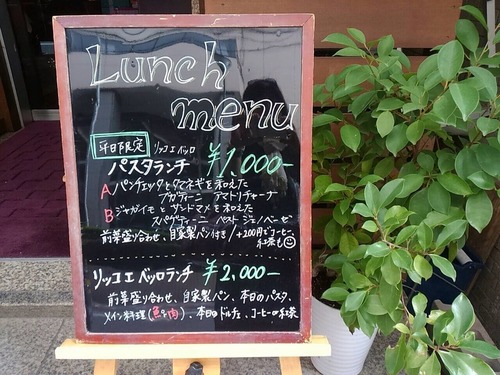 Lunch
menu
平日限定 リッコエベッロ
パスタランチ ¥1,000-
A パンチェッタとタマネギを和えた
ブカティーニ アマトリチャーナ
B ジャガイモとサンドマメを和えた
スパゲティーニ ペスト ジェノベーゼ
前菜盛り合わせ、自家製パン付き/+200円でコーヒー
紅茶も
リッコ エ ベッロランチ ¥2,000-
前菜盛り合わせ、自家製パン、本日のパスタ、
メイン料理(魚or肉)、本日のドルチェ、コーヒーor紅茶